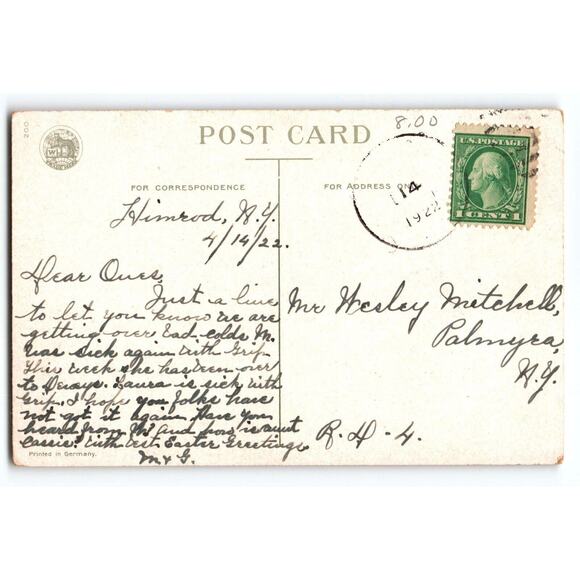 200
8.00
POST CARD
W
FOR CORRESPONDENCE
FOR ADDRESS ON
14
1922
U.S. POSTAGE
1 CENT 1
Himrod, N.Y.
4/14/22.
Dear Ones,
Just a line
to let you know we are
getting over bad colds M.
was sick again with Grip
this week she has been over
to Deweys. Laura is sick with
Grip. I hope you folks have
not got it again. Have you
heard from and how is aunt
Cassie? With best Easter Greetings
M + G.
Mr Wesley Mitchell,
Palmyra,
N.Y.
R-D-4.
Printed in Germany.